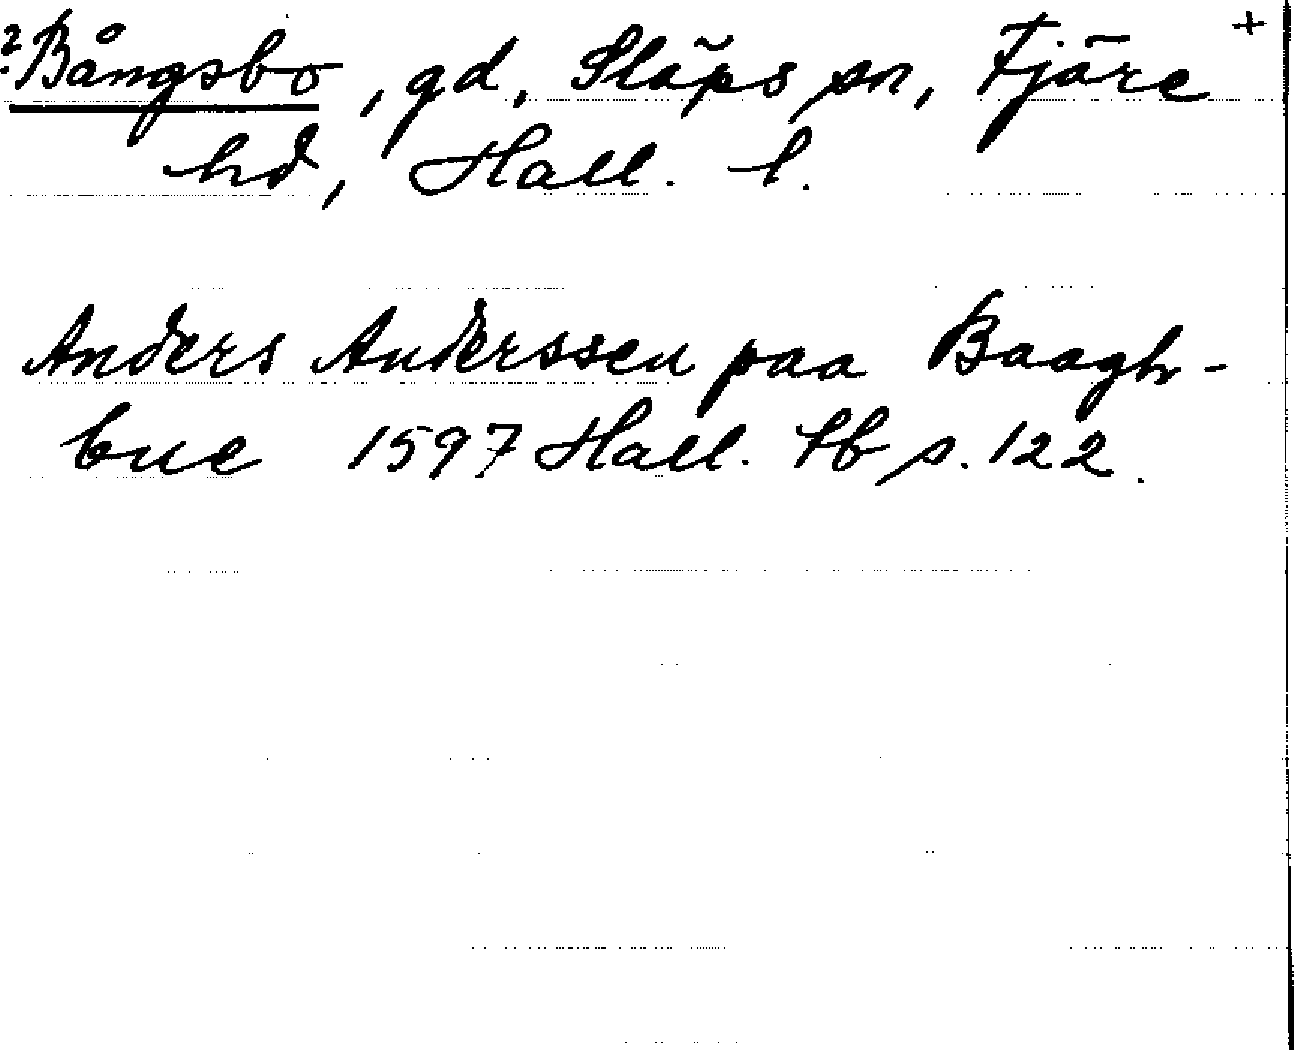 ? Bångsbo, gd, Släps sn, Fjäre +
hd, Hall. l.
Anders Anderssen paa Baagh-
bue 1597 Hall. Sb s. 122.